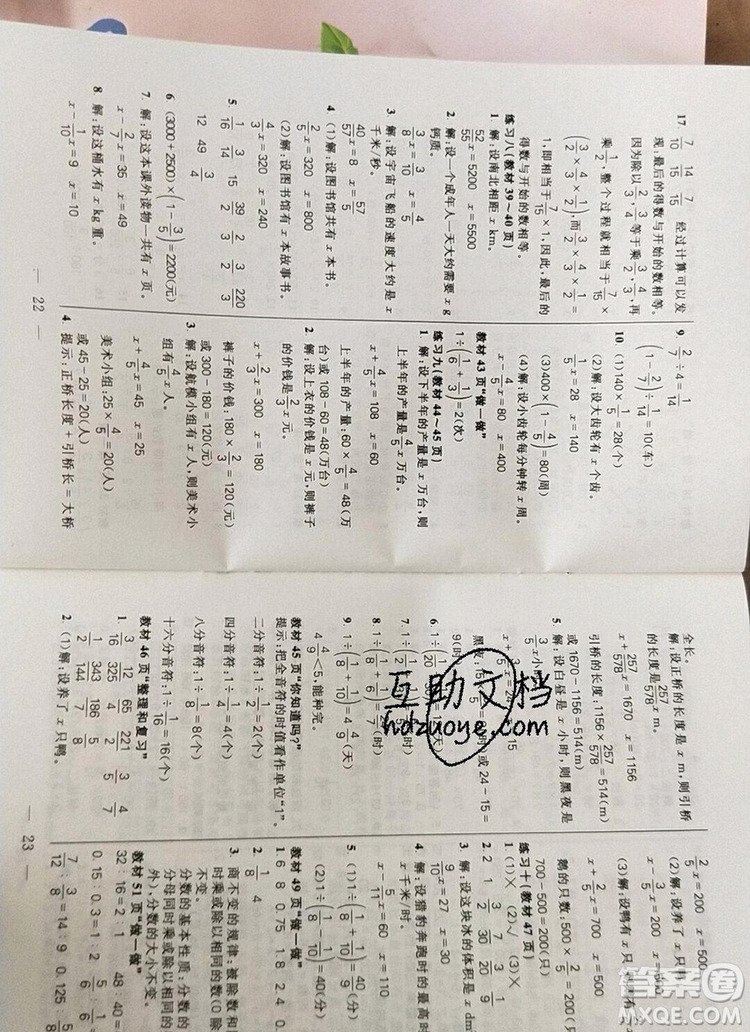 17 7/10 14/15 7/15 经过计算可以发
现：最后的得数与开始的数相等。
因为除以2/3,3/4,等于乘3/2,4/3,再
乘1/2,整个过程就相当于7/15×
(3/2×4/3×1/2),而3/2×4/3×1/2=
1,即相当于7/15×1,因此,最后的
得数与开始的数相等。
练习八(教材39~40页)
1. 解:设南北相距x km。
52/55x=5200 x=5500
2. 解:设一个成年人一天大约需要x g
钙质。
3/8x=3/10 x=4/5
3. 解:设宇宙飞船的速度大约是x
千米/秒。
40/57x=8 x=57/5
4. (1)解:设图书馆共有x本书。
2/5x=320 x=800
(2)解:设图书馆有x本故事书。
4/3x=320 x=240
5. 1/16 3/14 3/15 39/2 2/3 3/2 220/3
12 49 3/4
6. (3000+2500)×(1-3/5)=2200(元)
7. 解:设这本课外读物一共有x页。
x-2/7x=35 x=49
8 解:设这桶水有x kg重。
x-1/10x=9 x=10
— 22 —
9. 2/7÷4=1/14
(1-2/7)÷1/14=10(车)
10 (1)140×1/5=28(个)
(2)解:设大齿轮有x个齿。
1/5x=28 x=140
(3)400×(1-4/5)=80(周)
(4)解:设小齿轮每分钟转x周。
x-4/5x=80 x=400
教材43页“做一做”
1÷(1/6+1/3)=2(次)
练习九(教材44~45页)
1. 解:设下半年的产量是x万台,则
上半年的产量是4/5x万台。
x+4/5x=108 x=60
上半年的产量:60×4/5=48(万
台)或108-60=48(万台)
2. 解:设上衣的价钱是x元,则裤子
的价钱是2/3x元。
x+2/3x=300 x=180
裤子的价钱:180×2/3=120(元)
或300-180=120(元)
3. 解:设航模小组有x人,则美术小
组有4/5x人。
x+4/5x=45 x=25
美术小组:25×4/5=20(人)
或45-25=20(人)
4. 提示:正桥长度+引桥长=大桥
全长。
解:设正桥的长度是x m,则引桥
的长度是257/578x m。
x+257/578x=1670 x=1156
引桥的长度:1156×257/578=514(m)
或1670-1156=514(m)
5. 解:设白昼是x小时,则黑夜是
24-15=
9(时)
9. 1÷(1/8+1/10)=4 4/9(天)
4 4/9<5,能种完。
教材45页“你知道吗?”
提示:把全音符的时值看作单位“1”。
二分音符:1÷1/2=2(个)
四分音符:1÷1/4=4(个)
八分音符:1÷1/8=8(个)
十六分音符:1÷1/16=16(个)
教材46页“整理和复习”
2. (1)解:设养了x只鸭。
— 23 —
2/5x=200 x=500
(2)解:设养了x只
(3)解:设鸭有x只
x+2/5x=700 x=500
鹅的只数:500×2/5=200(只)
700-500=200(只)
练习十(教材47页)
1. (1)× (2)√ (3)×
3. 解:设这块冰的体积是x dm
9/10x=27 x=30
4. 解:设猎豹奔跑时的最高时
x千米/时。
x-5/11x=60 x=110
5. (1)1÷(1/8+1/10)=40/9(分)
(2)1÷(1/8-1/10)=40(分)
教材49页“做一做”
1. 6 8 0.75 1.8 2.4 0.
2. 1/8 4
3. 商不变的规律:被除数和除
时乘或除以相同的数(0除
不变。
分数的基本性质:分数的
分母同时乘或除以相同的
外),分数的大小不变。
教材51页“做一做”
32∶16=2∶1 48∶40=
0.15∶0.3=1∶2 5/6∶1/6=5∶
7/12∶3/8=14∶9 0.125∶5/8
互助文档
hdzuoye.com
答案圈
MXQE.COM